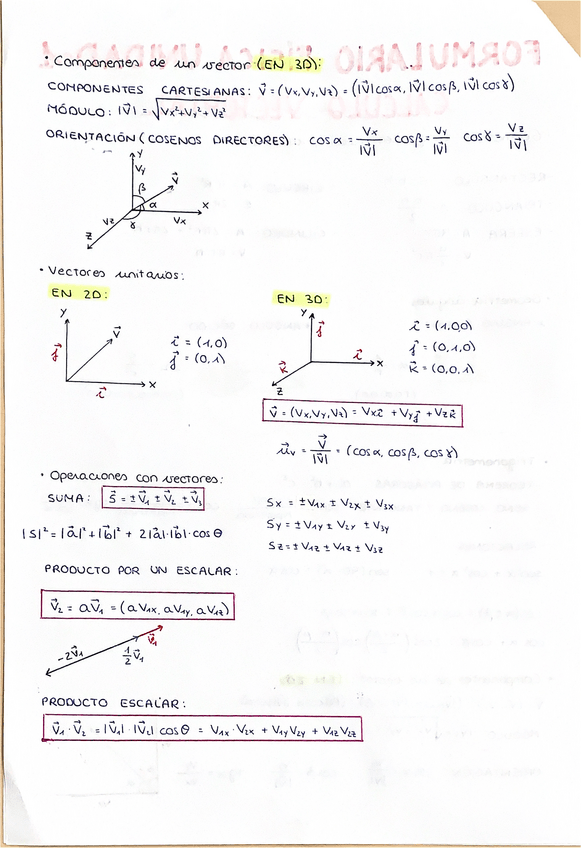 • Componentes de un vector (EN 3D):
COMPONENTES CARTESIANAS: V⃗ = (Vx, Vy, Vz) = (|V⃗| cos α, |V⃗| cos β, |V⃗| cos γ)
MÓDULO: |V⃗| = √(Vx² + Vy² + Vz²)
ORIENTACIÓN (COSENOS DIRECTORES): cos α = Vx/|V⃗| cos β = Vy/|V⃗| cos γ = Vz/|V⃗|
y
Vy
V⃗
β
α
x
Vz
γ
Vx
z
• Vectores unitarios:
EN 2D:
y
V⃗
j⃗
x
i⃗
i⃗ = (1,0)
j⃗ = (0,1)
EN 3D:
y
j⃗
k⃗
i⃗
x
z
i⃗ = (1,0,0)
j⃗ = (0,1,0)
k⃗ = (0,0,1)
V⃗ = (Vx, Vy, Vz) = Vx i⃗ + Vy j⃗ + Vz k⃗
u⃗v = V⃗/|V⃗| = (cos α, cos β, cos γ)
• Operaciones con vectores:
SUMA: S⃗ = ± V⃗1 ± V⃗2 ± V⃗3
Sx = ± V1x ± V2x ± V3x
|S|² = |a⃗|² + |b⃗|² + 2|a⃗|·|b⃗|·cos θ
Sy = ± V1y ± V2y ± V3y
Sz = ± V1z ± V1z ± V3z
PRODUCTO POR UN ESCALAR:
V⃗2 = a V⃗1 = (a V1x, a V1y, a V1z)
V⃗1
-2V⃗1
1/2 V⃗1
PRODUCTO ESCALAR:
V⃗1 · V⃗2 = |V⃗1| · |V⃗2| cos θ = V1x · V2x + V1y V2y + V1z V2z